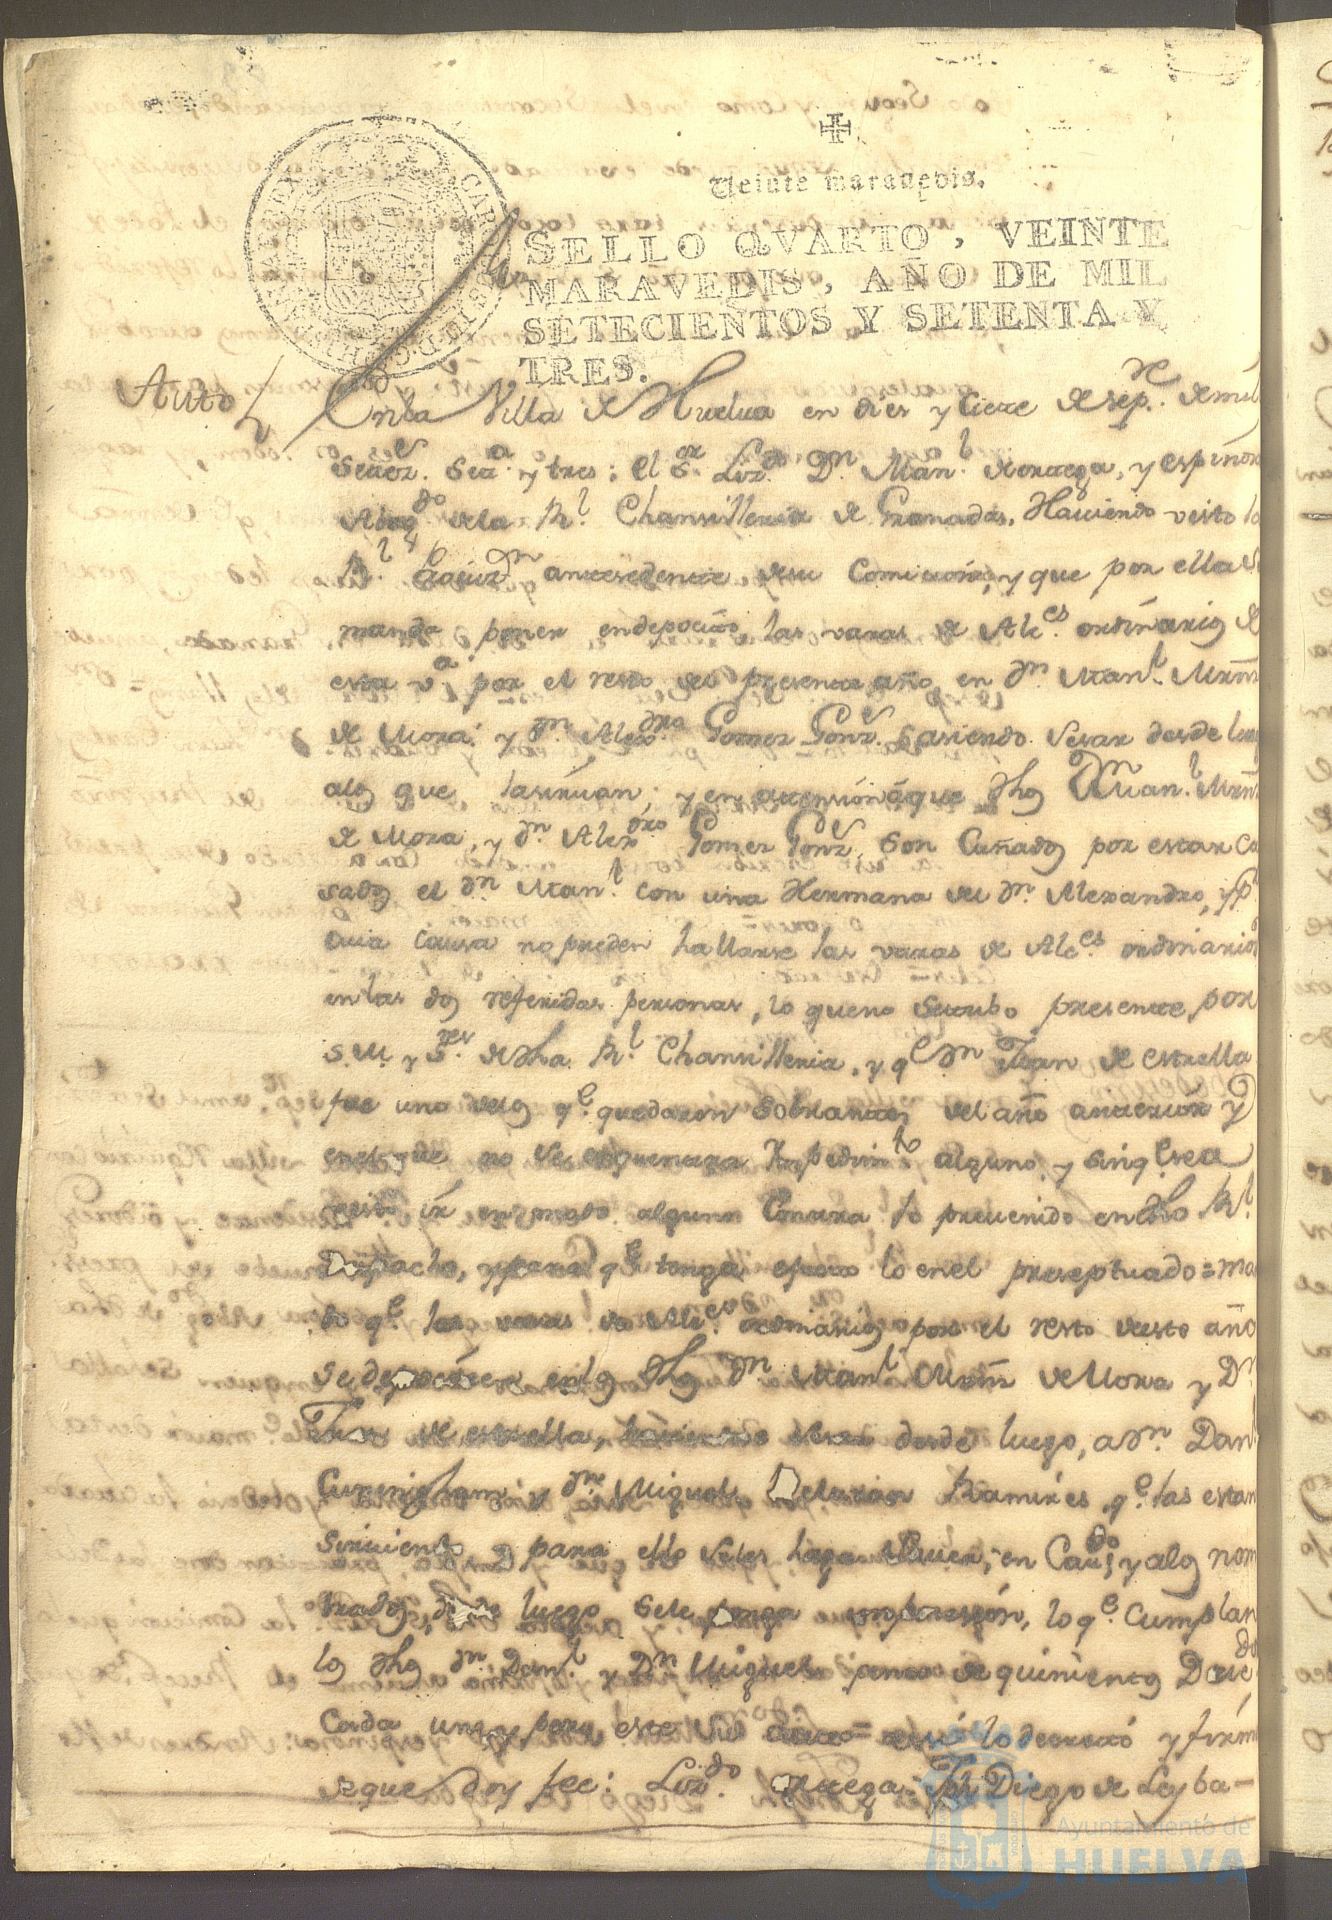 Veinte maravedis.
SELLO QVARTO, VEINTE
MARAVEDIS, AÑO DE MIL
SETECIENTOS Y SETENTA Y
TRES.
Auto
En la Villa de Huelua en dies y Ciete de sepre. de mil
Setez. Seta. y tres; el Sor. Lizdo. Dn. Manl. de ortega, y espinosa
Abogdo. de la Rl. Chansilleria de Granada, Haviendo visto la
Rl. antesedente de su Comicion, y que por ella se
manda poner en depocito las varas de Alces. ordinarios de
esta va. por el resto del presente año en Dn. Manl. Mrñz
de Mora; y Dn. Alexdro Gomez Gonz. hasiendo sesar desde luego
a los que las siruan; y en atension á que dhos Dn. Manl. Mrñz
de Mora, y Dn. Alexdro Gomez Gonz. son Cuñados por estar ca
sado el Dn. Manl. con una Hermana del Dn. Alexandro, y pr
cuia causa no pueden hallarse las varas de Alces. ordinarios
en las dos referidas personas, lo que no se tubo presente por
S.M. y Sres. de dha Rl. Chansilleria, y qe Dn Juan de estrella
fue uno de los qe. quedaron sobrantes del año anterior y
en el que no se encuentra Impedimto alguno y sin qe. sea
visto ir en modo alguno Contra lo prevenido en dho Rl.
Despacho, y para qe tenga efecto lo en el preseptuado = man
do qe las varas de Alces. ordinarios por el resto de este año
se depociten en los dhos Dn. Manl. Mrñz de Mora y Dn
Juan de estrella, hasiendo sesar desde luego, a Dn. Danl.
Cuningham y Dn. Miguel Ramires qe. las estan
siruiendo, y para ello se les haga saver, en Cavdo, y a los nom
brados, desde luego se le ponga en poseción, lo qe. Cumplan
los dhos Dn. Danl. y Dn Miguel pena de quinientos Ducdos
Cada uno y por este su auto = assi lo decretó y firmó
de que doy fee: Lizdo. ortega: Jph Diego de Leyba =
Ayuntamiento de
HUELVA